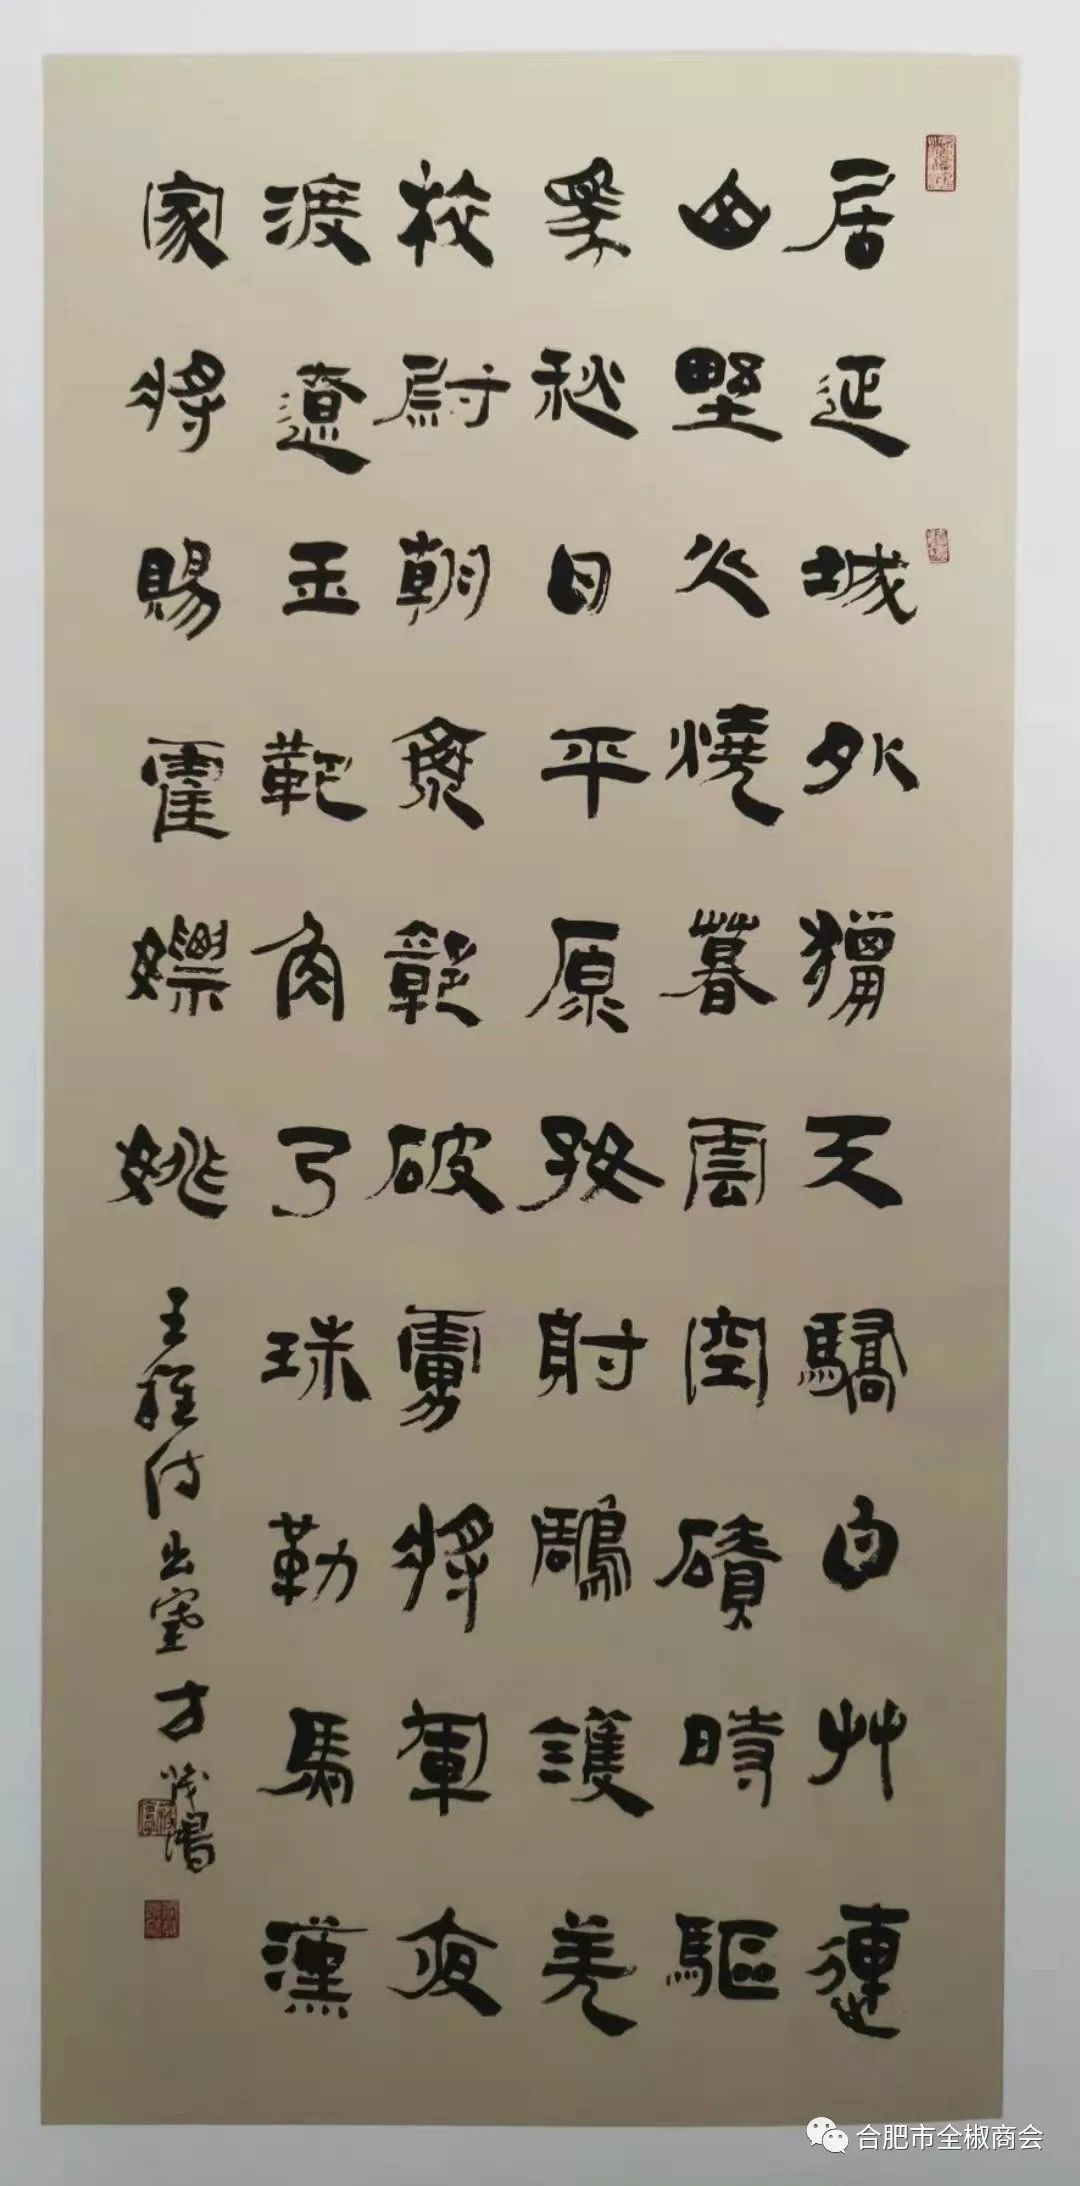 居延城外獵天驕白艸連
山野火燒暮雲空磧時驅
馬秋日平原好射鵰護羌
校尉朝乘鄣破虜將軍夜
渡遼玉靶角弓珠勒馬漢
家將賜霍嫖姚
王維詩出塞 方茂
合肥市全椒商会